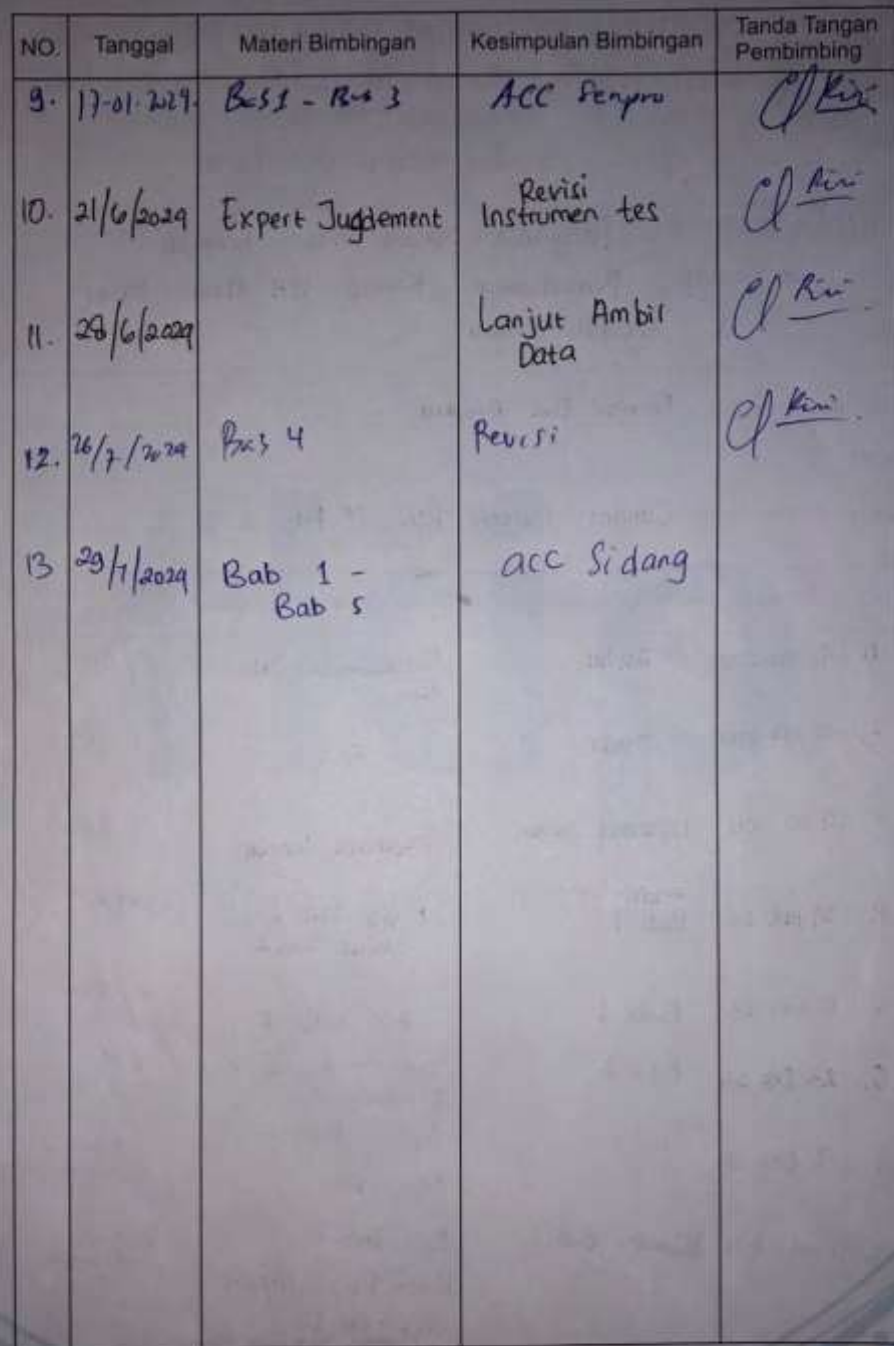 NO. Tanggal Materi Bimbingan Kesimpulan Bimbingan Tanda Tangan
Pembimbing
9. 17-01-2024 Bab 1 - Bab 3 ACC Sempro Rini
10. 21/6/2024 Expert Jugdement Revisi
Instrumen tes Rini
11. 28/6/2024 Lanjut Ambil
Data Rini
12. 26/7/2024 Bab 4 Revisi Rini
13 29/7/2024 Bab 1 - acc Sidang
Bab 5